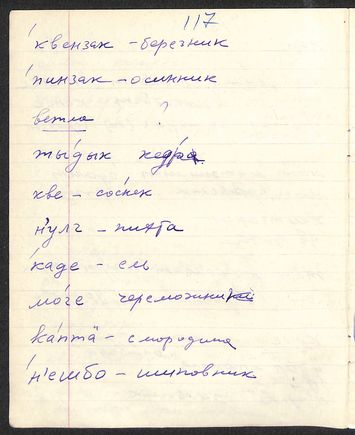 117
ква́нзак – березник
пи́нзак – осинник
ветла ?
ты́дык кедра
кве – сосняк
н'улг – пихта
ка́де – ель
мо́ге черемошник
ка́птä – смородина
н'ешбо – шиповник